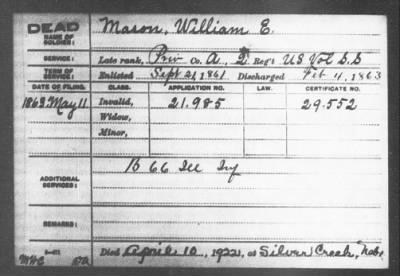 DEAD
NAME OF SOLDIER: Mason, William E.
SERVICE: Late rank, Priv Co. A, 2 Reg't US Vol S.S
TERM OF SERVICE: Enlisted Sept 21, 1861 Discharged Feb 4, 1863
DATE OF FILING. CLASS. APPLICATION NO. LAW. CERTIFICATE NO.
1863 May 11 Invalid, 21.985 29.552
Widow,
Minor,
ADDITIONAL SERVICES: B 66 Ill Inf
REMARKS:
Died April 10, 1922, at Silver Creek, Nebr